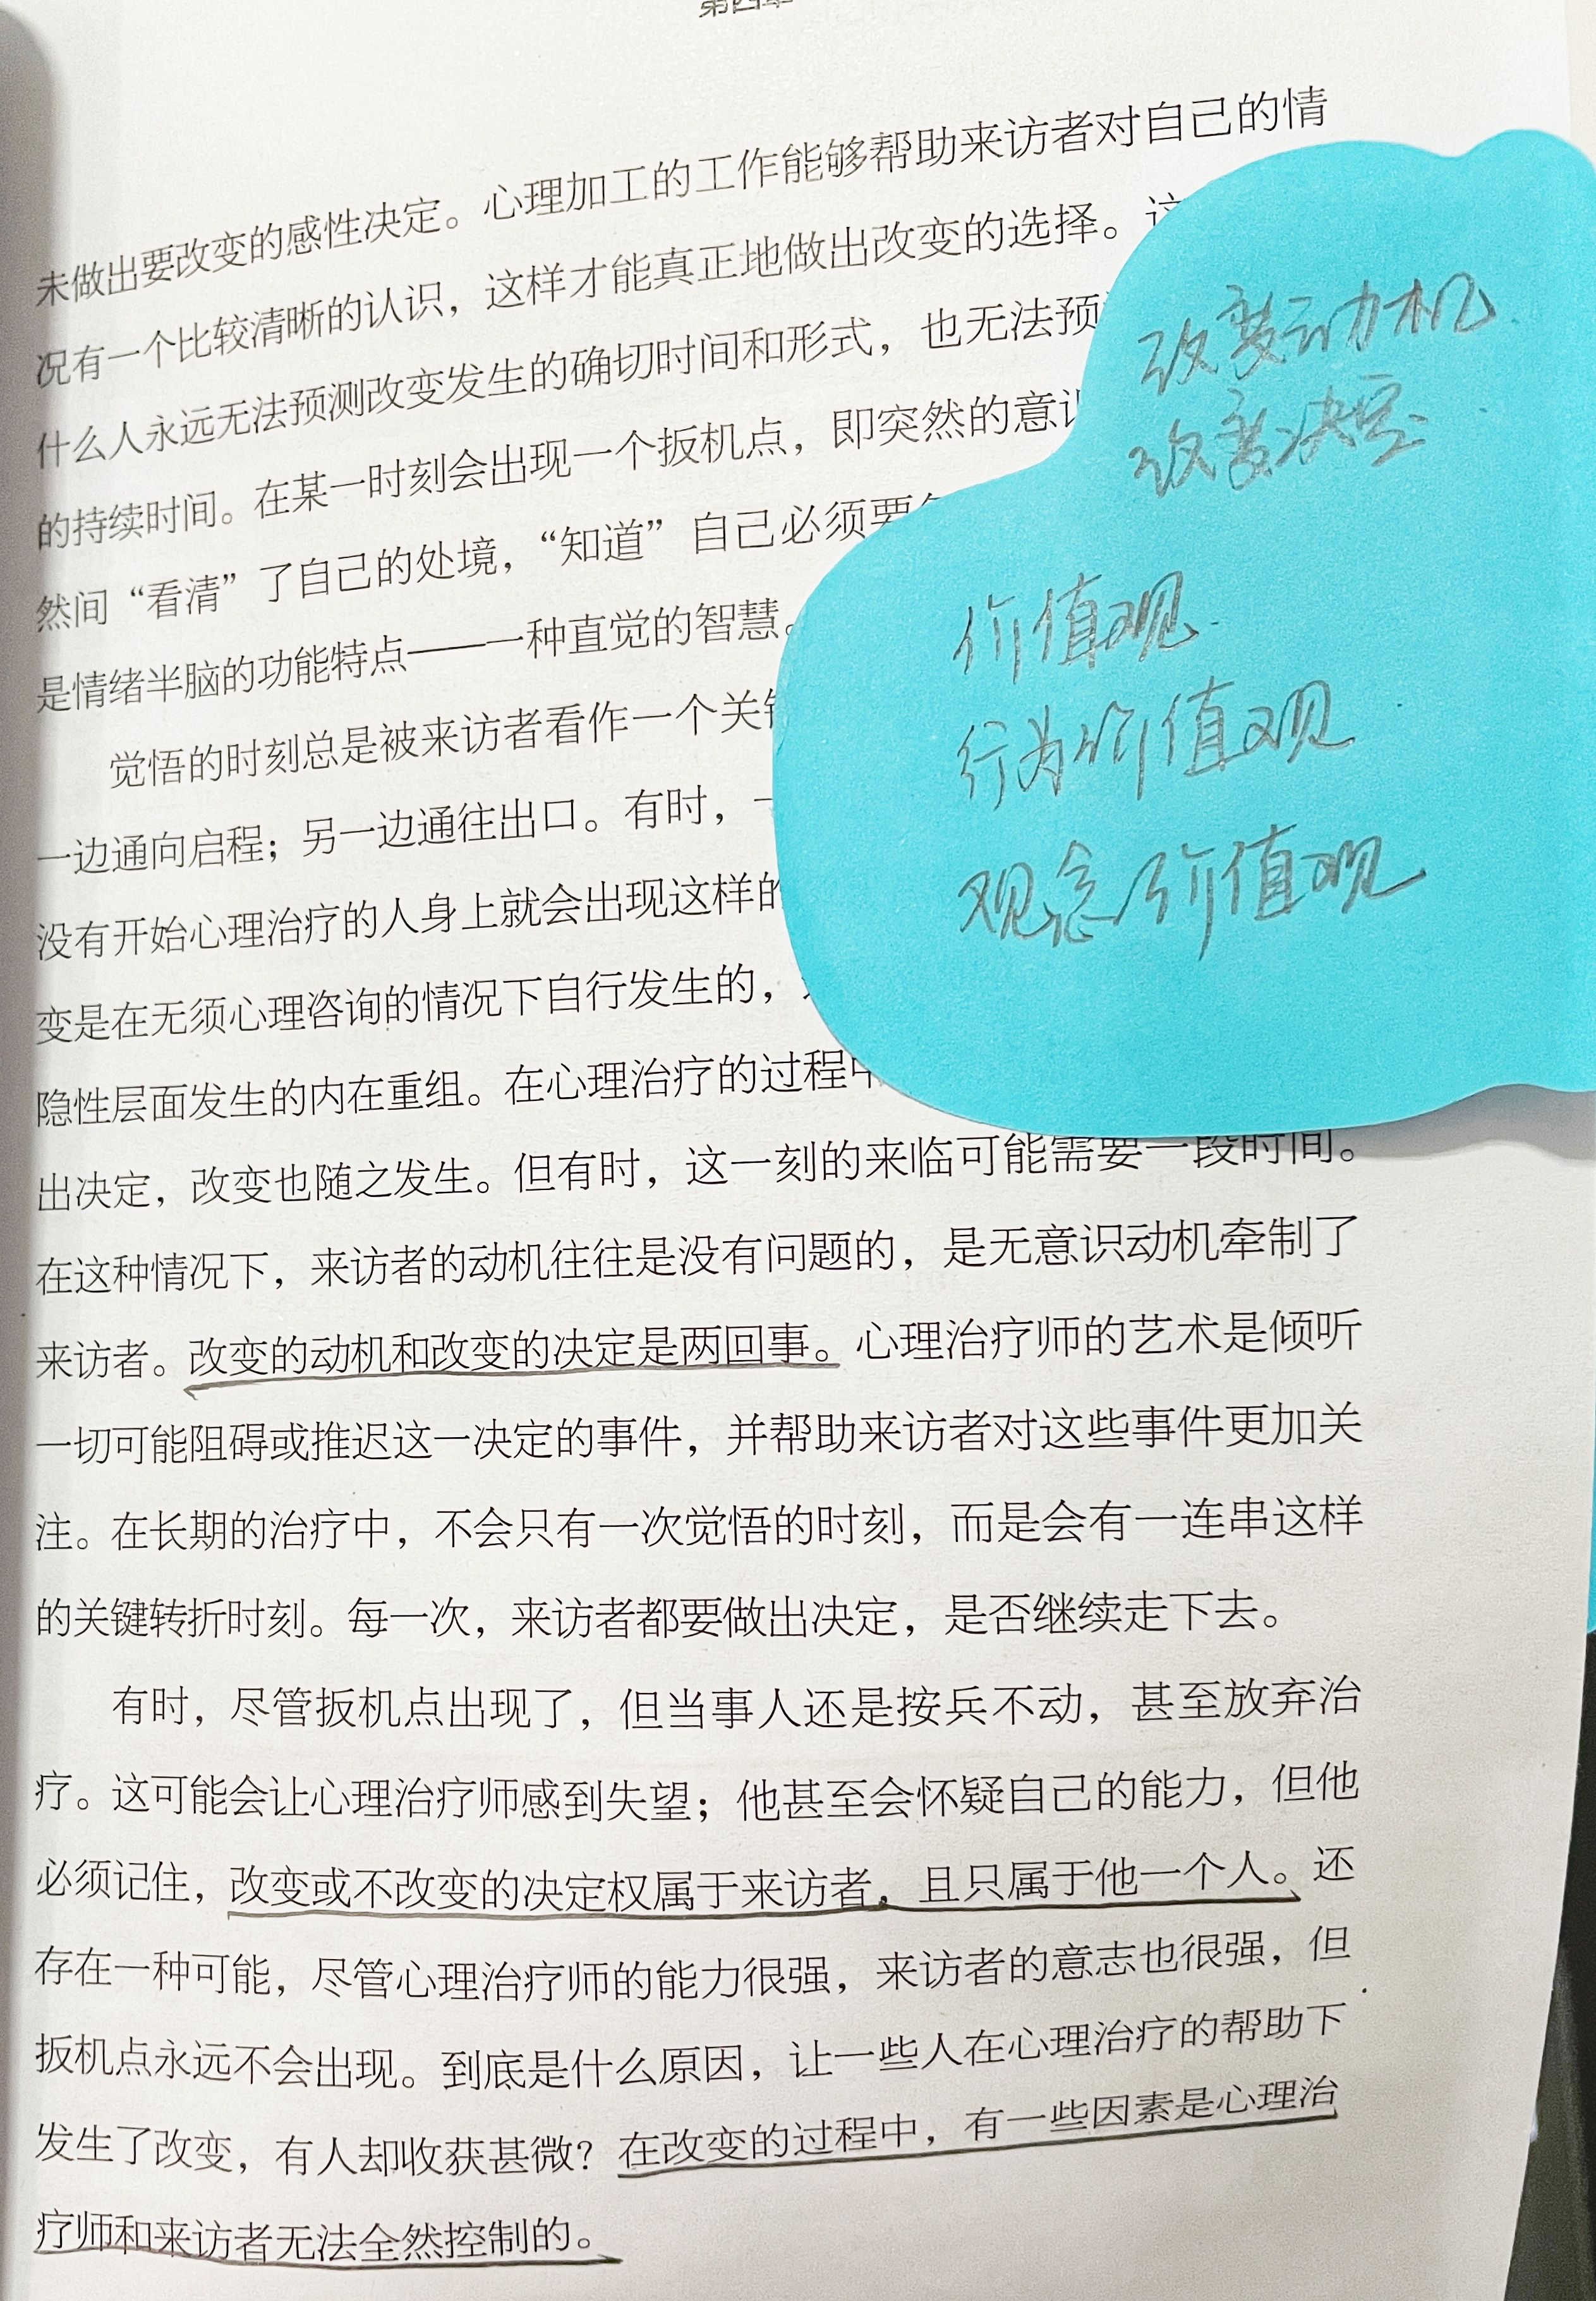 第四章
未做出要改变的感性决定。心理加工的工作能够帮助来访者对自己的情
况有一个比较清晰的认识，这样才能真正地做出改变的选择。这
什么人永远无法预测改变发生的确切时间和形式，也无法预
的持续时间。在某一时刻会出现一个扳机点，即突然的意识
然间“看清”了自己的处境，“知道”自己必须要
是情绪半脑的功能特点——一种直觉的智慧。
觉悟的时刻总是被来访者看作一个关键
一边通向启程；另一边通往出口。有时，
没有开始心理治疗的人身上就会出现这样的
变是在无须心理咨询的情况下自行发生的，
隐性层面发生的内在重组。在心理治疗的过程中
出决定，改变也随之发生。但有时，这一刻的来临可能需要一段时间。
在这种情况下，来访者的动机往往是没有问题的，是无意识动机牵制了
来访者。改变的动机和改变的决定是两回事。心理治疗师的艺术是倾听
一切可能阻碍或推迟这一决定的事件，并帮助来访者对这些事件更加关
注。在长期的治疗中，不会只有一次觉悟的时刻，而是会有一连串这样
的关键转折时刻。每一次，来访者都要做出决定，是否继续走下去。
有时，尽管扳机点出现了，但当事人还是按兵不动，甚至放弃治
疗。这可能会让心理治疗师感到失望；他甚至会怀疑自己的能力，但他
必须记住，改变或不改变的决定权属于来访者，且只属于他一个人。还
存在一种可能，尽管心理治疗师的能力很强，来访者的意志也很强，但
扳机点永远不会出现。到底是什么原因，让一些人在心理治疗的帮助下
发生了改变，有人却收获甚微？在改变的过程中，有一些因素是心理治
疗师和来访者无法全然控制的。
改变动机
改变决定
价值观
行为价值观
观念价值观